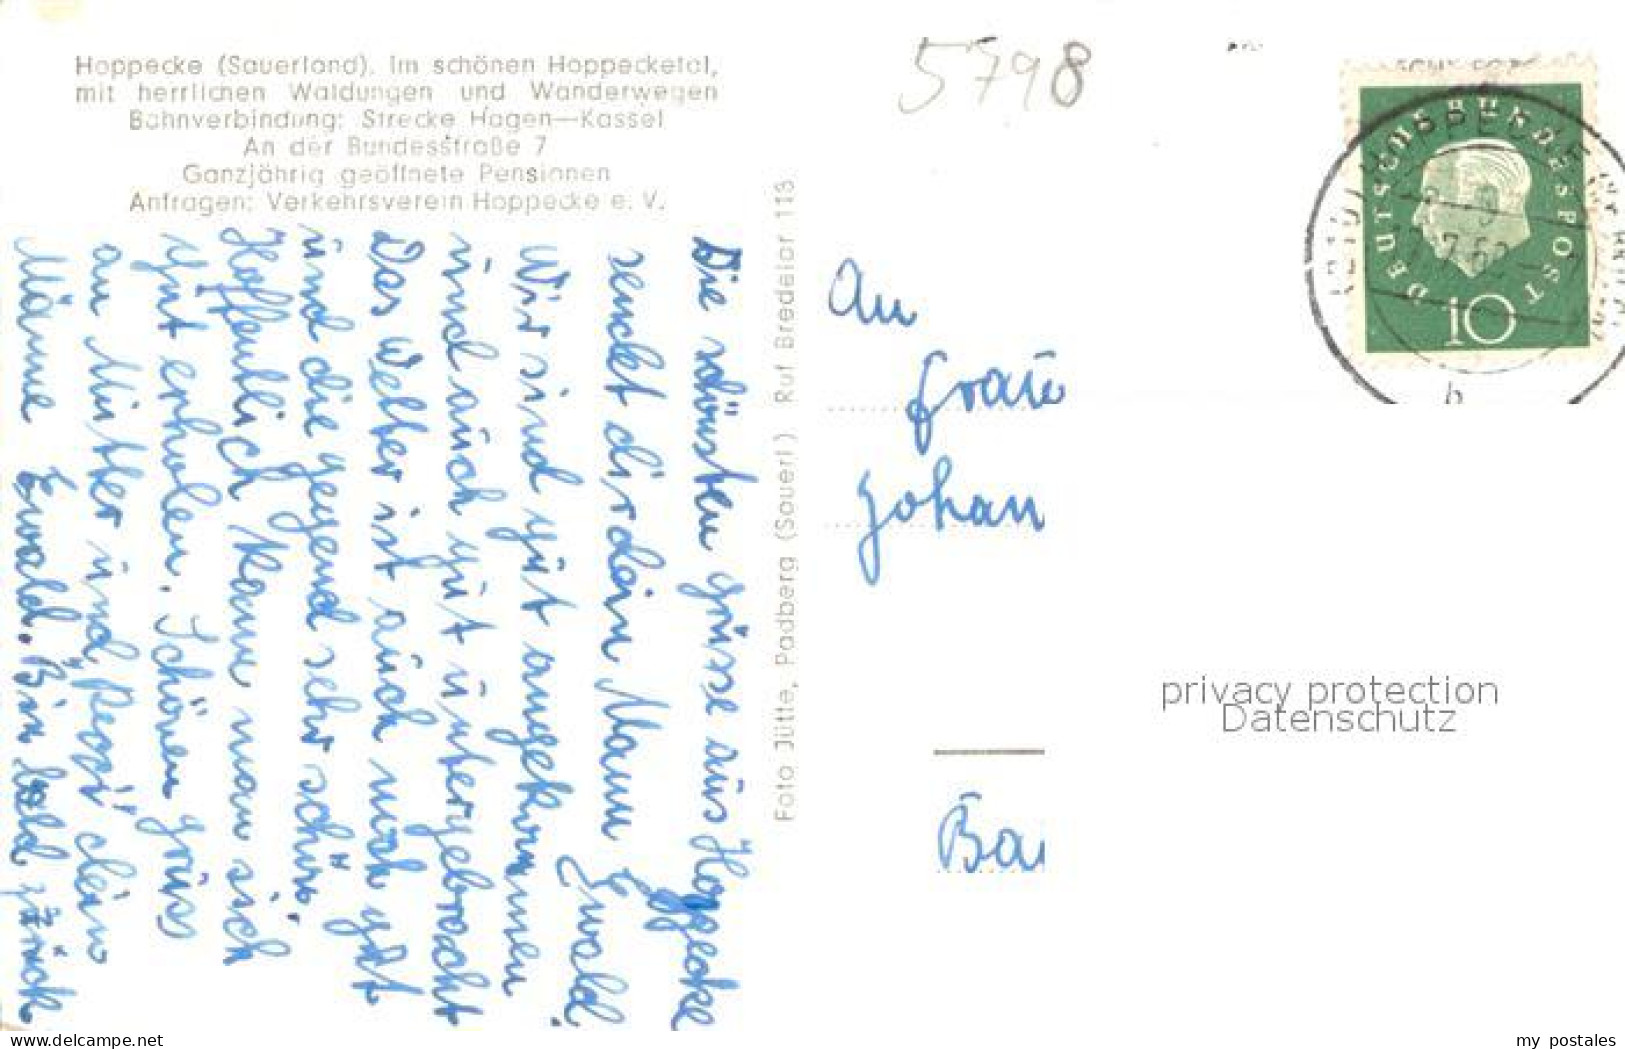 Hoppecke (Sauerland), im schönen Hoppecketal,
mit herrlichen Waldungen und Wanderwegen
Bahnverbindung: Strecke Hagen—Kassel
An der Bundesstraße 7
Ganzjährig geöffnete Pensionen
Anfragen: Verkehrsverein Hoppecke e. V.
Die schönsten Grüsse aus Hoppecke
senckt dir dein Mann Ewald
Wir sind gut angekommen
und auch gut untergebracht
Das Wetter ist auch noch gut
und die gegend sehr schön.
Hoffentlich kann man sich
gut erholen. Schönen grüss
an Mutter und dein
Männe Ewald. Bin bald zurück
Foto Jütte, Padberg (Sauerl) Ruf Bredelar 113
5798
An
Frau
Johan
Ba
DEUTSCHE BUNDESPOST
10
b
privacy protection
Datenschutz
www.delcampe.net
my_postales